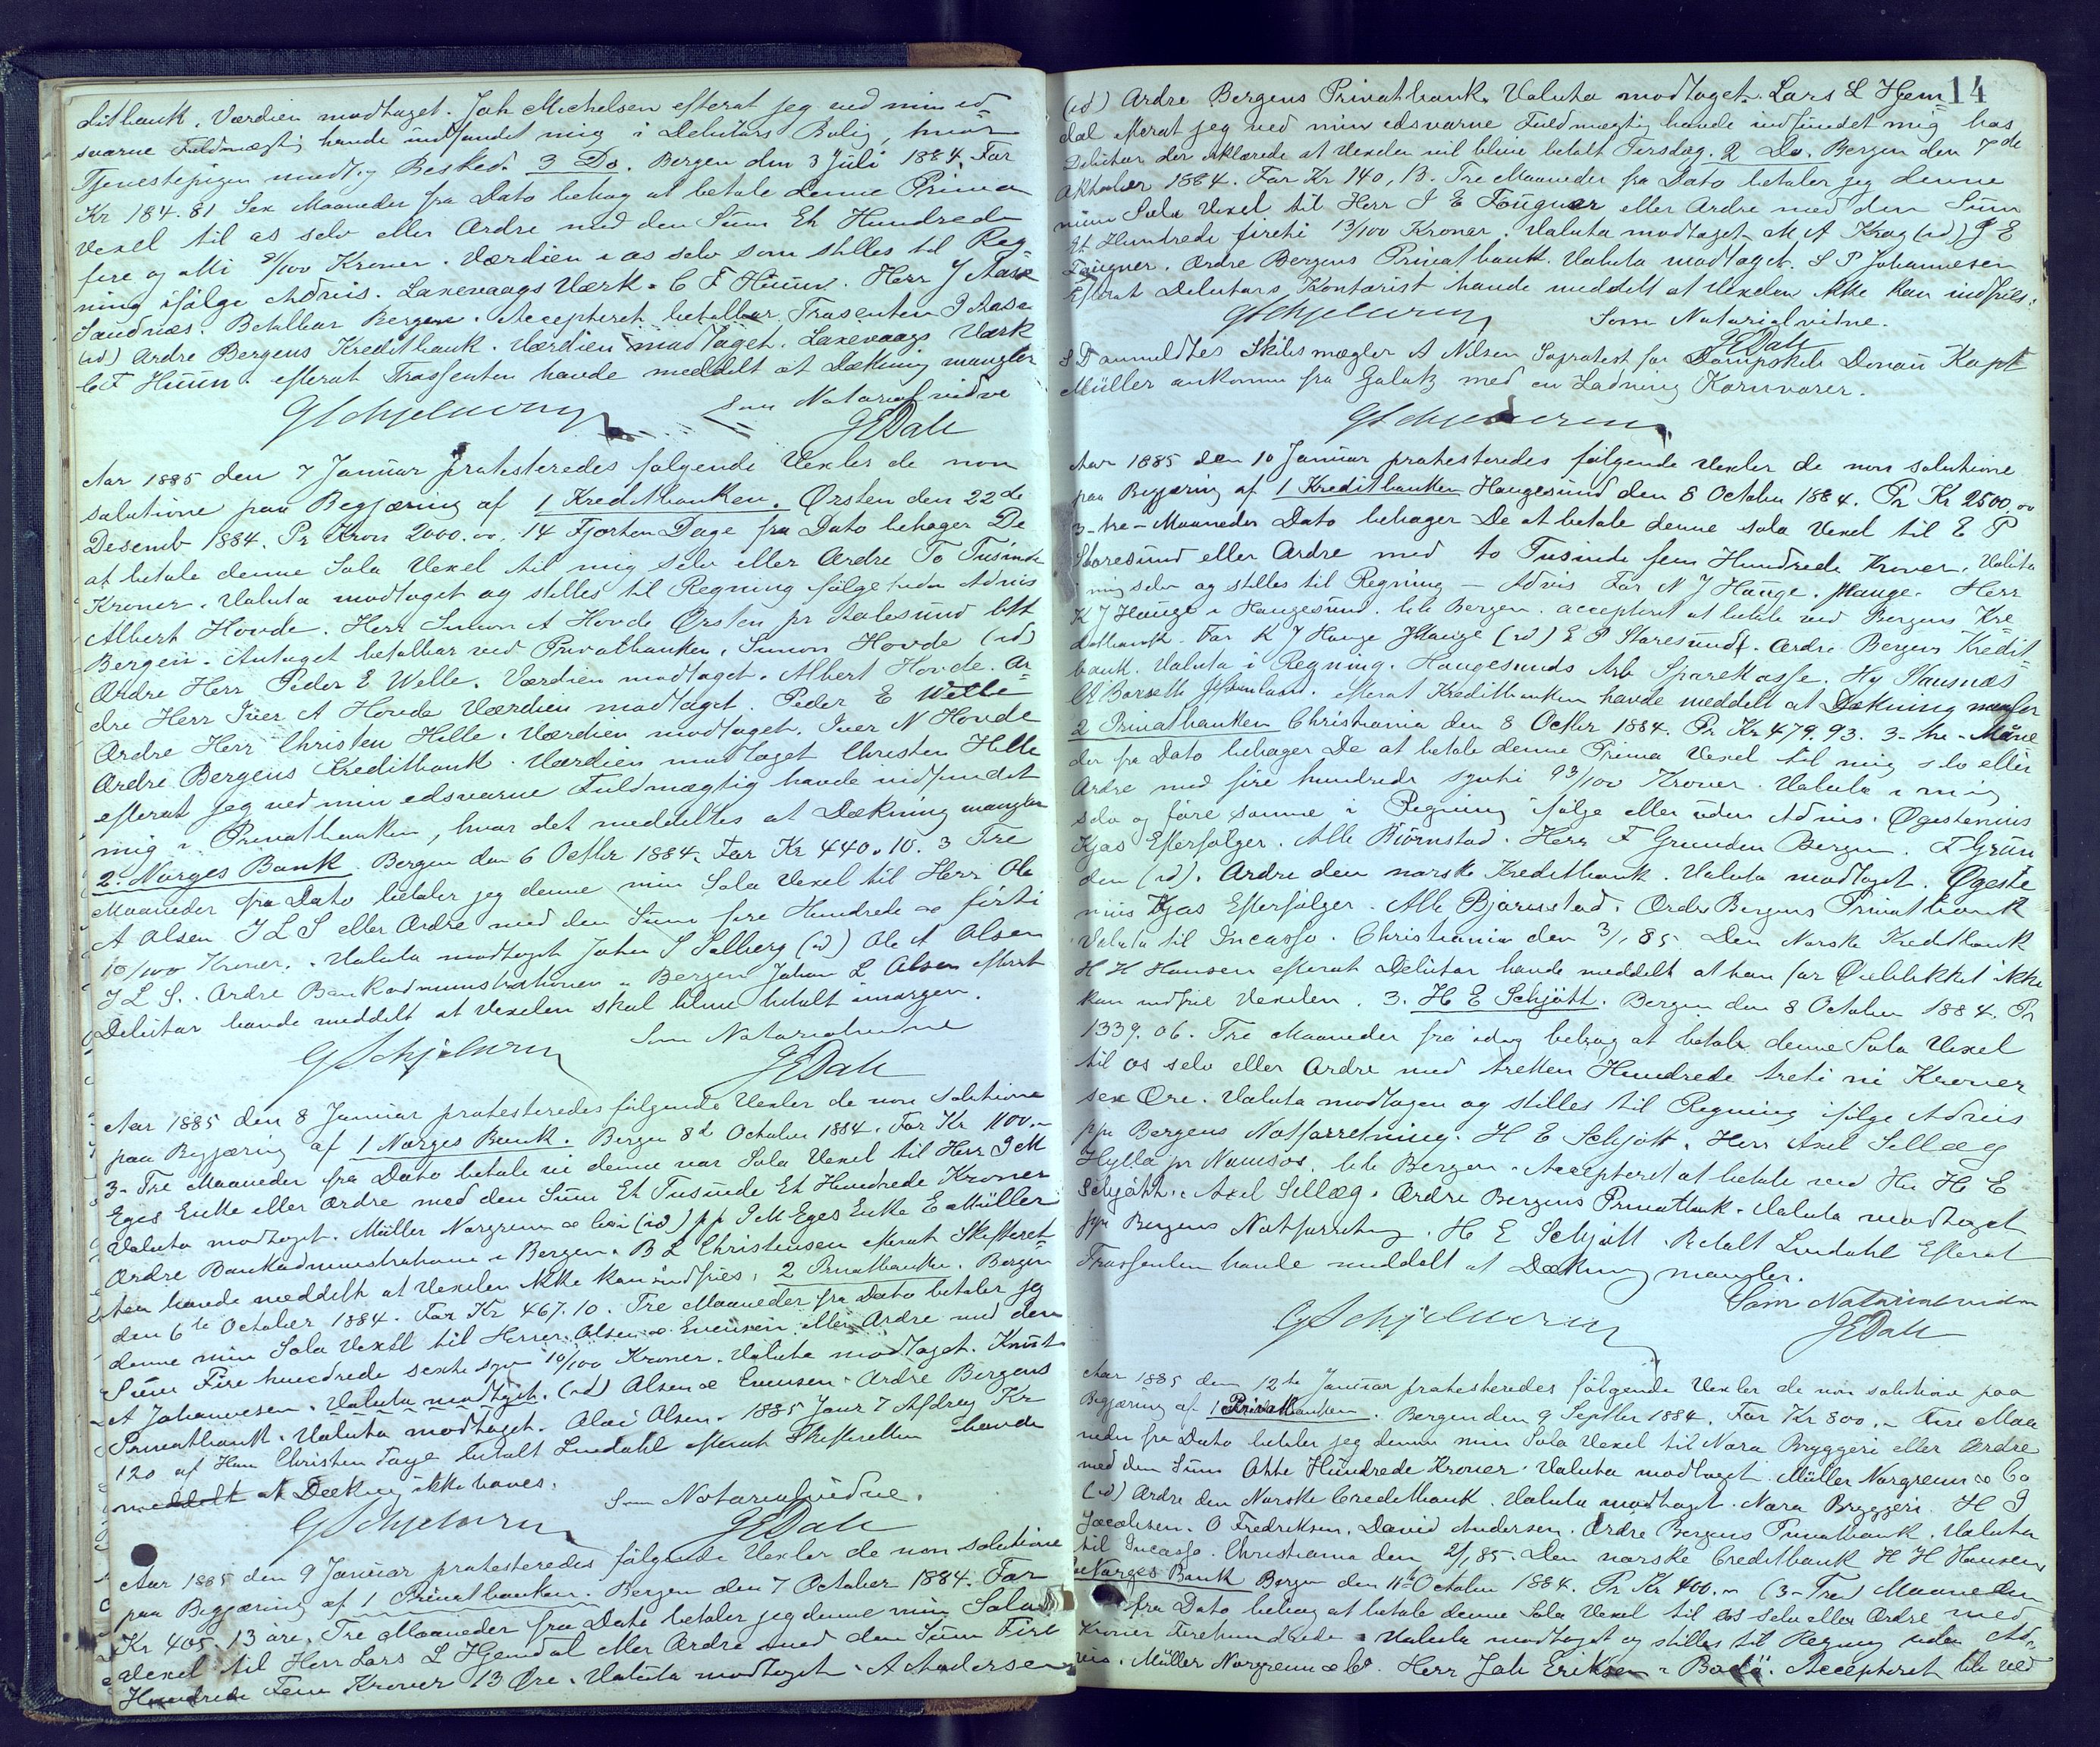 ditbank. Værdien modtaget. Joh Michelsen efterat jeg ved min ed
svorne Fuldmægtig havde indfundet mig i Debitors Bolig, hvor
Tjenestepigen modtog Besked. 3 Do. Bergen den 3 Juli 1884. For
Kr 184.81 Sex Maaneder fra Dato behag at betale denne Prima
Vexel til os selv eller Ordre med den Sum Et Hundrede
fire og otti 81/100 Kroner. Værdien i os selv som stilles til Reg
ning ifølge Advis. Laxevaags Værk. C F Huun. Herr J Aase
Sandnæs. Betalbar Bergen. Accepteret betalbar Trasenten J Aase
(id) Ordre Bergens Kreditbank. Værdien modtaget. Laxevaags Værk
C F Huun. efterat Trassenten havde meddelt at Dækning mangler
GSchjelderup som Notarialvidne
JEDahl
Aar 1885 den 7 Januar protesteredes følgende Vexler de non
solutione paa Begjæring af 1 Kreditbanken. Ørsten den 22de
Desemb 1884. Pr Kron 2000.00. 14 Fjorten Dage fra Dato behager De
at betale denne Sola Vexel til mig selv eller Ordre To Tusinde
Kroner. Valuta modtaget og stilles til Regning følge uden Advis
Albert Hovde. Herr Simon A Hovde Ørsten pr Aalesund btt
Bergen. Antaget betalbar ved Privatbanken. Simon Hovde (id)
Ordre Herr Peder E Welle. Værdien modtaget. Albert Hovde. Or
dre Herr Iver A Hovde Værdien modtaget. Peder E Welle
Ordre Herr Christen Hille. Værdien modtaget. Iver N Hovde
Ordre Bergens Kreditbank. Værdien modtaget Christen Hille
efterat jeg ved min edsvorne Fuldmægtig havde indfundet
mig i Privatbanken, hvor det meddeltes at Dækning mangler
2. Norges Bank. Bergen den 6 Octbr 1884. For Kr 440.10. 3 Tre
Maaneder fra Dato betaler jeg denne min Sola Vexel til Herr Ole
A Olsen J L S eller Ordre med den Sum fire Hundrede & førti
10/100 Kroner. Valuta modtaget John S Solberg (id) Ole A Olsen
J L S. Ordre Bankadministrationen i Bergen Johan L Olsen efterat
Debitor havde meddelt at Vexelen skal blive betalt imorgen.
GSchjelderup Som Notarialvidne
JEDahl
Aar 1885 den 8 Januar protesteredes følgende Vexler de non solutione
paa Begjæring af 1 Norges Bank. Bergen 8d October 1884. For Kr 1100.-
3- Tre Maaneder fra Dato betale vi denne vor Sola Vexel til Herr J M
Eges Enke eller Ordre med den Sum Et Tusinde Et Hundrede Kroner
Valuta modtaget. Müller Norgrenn & Co (id) pp J M Eges Enke E Müller
Ordre Bankadministrationen i Bergen. B L Christensen efterat Skifteret
ten havde meddelt at Vexelen ikke kan indfries. 2 Privatbanken. Bergen
den 6te October 1884. For Kr 467.10. Tre Maaneder fra Dato betaler jeg
denne min Sola Vexel til Herrer Olsen & Evensen eller Ordre med den
Sum Fire hundrede sexti syv 10/100 Kroner. Valuta modtaget. Knut
A Johannesen. Valuta modtaget. (id) Olsen & Evensen. Ordre Bergens
Privatbank. Valuta modtaget. Olai Olsen. 1885 Janr 7 Afdrag Kr
120 af Hans Christen Faye betalt Lindahl efterat Skifteretten havde
meddelt at Dækning ikke haves.
GSchjelderup Som Notarialvidne.
JEDahl
Aar 1885 den 9 Januar protesteredes følgende Vexler de non solutione
paa Begjæring af 1 Privatbanken. Bergen den 7 October 1884. For
Kr 405.13 øre. Tre Maaneder fra Dato betaler jeg denne min Sola
Vexel til Herr Lars L Hjemdal eller Ordre med den Sum Fire
Hundrede Fem Kroner 13 Øre. Valuta modtaget. A Andersen
14
(id) Ordre Bergens Privatbank. Valuta modtaget. Lars L Hjem
dal efterat jeg ved min edsvorne Fuldmægtig havde indfundet mig hos
Debitor der erklærede at Vexelen vil blive betalt Torsdag. 2 Do. Bergen den 7de
Oktober 1884. For Kr 140,13. Tre Maaneder fra Dato betaler jeg denne
min Sola Vexel til Herr J E Fougner eller Ordre med den Sum
Et Hundrede fireti 13/100 Kroner. Valuta modtaget M A Krog (id) J E
Fougner. Ordre Bergens Privatbank. Valuta modtaget. S P Johannesen
Efterat Debitors Kontorist havde meddelt at Vexelen ikke kan indfries.
GSchjelderup Som Notarialvidne.
JEDahl
S D anmeldtes Skibsmægler A Nilsen Søprotest for Dampskib Donau Kapt
Müller ankommen fra Galatz med en Ladning Kornvarer.
GSchjelderup
Aar 1885 den 10 Januar protesteredes følgende Vexler de non solutione
paa Begjæring af 1 Kreditbanken Haugesund den 8 October 1884. Pr Kr 2500.00
3- tre- Maaneder Dato behager De at betale denne sola Vexel til E P
Storesund eller Ordre med to Tusinde fem Hundrede Kroner. Valuta
i mig selv og stilles til Regning - Advis For N J Hauge. Hauge. Herr
K J Hauge i Haugesund. btb Bergen. accepteret at betale ved Bergens Kre
ditbank. For K J Hauge JHauge (id) E P Storesund. Ordre Bergens Kredit
bank. Valuta i Regning. Haugesunds Arb Sparekasse. Hy Stausnæs
efterat Kreditbanken havde meddelt at Dækning mangler
2 Privatbanken Christiania den 8 Octbr 1884. Pr Kr 479.93. 3- tre- Maane
der fra Dato behager De at betale denne Prima Vexel til mig selv eller
Ordre med fire hundrede sytti 93/100 Kroner. Valuta i mig
selv og føre samme i Regning ifølge eller uden Advis. Øgestenius
Kjøs Efterfølger. Alb Bjørnstad. Herr F Grunden Bergen. F Grun
den (id). Ordre den norske Kreditbank. Valuta modtaget. Øgeste
nius Kjøs Efterfølger. Alb Bjørnstad. Ordre Bergens Privatbank
Valuta til Incasso. Christiania den 3/1 85. Den Norske Kreditbank
H H Hansen efterat Debitor havde meddelt at han for Øieblikket ikke
kan indfrie Vexelen. 3. H E Schjøtt. Bergen den 8 October 1884. Pr
1339.06. Tre Maaneder fra idag behag at betale denne Sola Vexel
til os selv eller Ordre med tretten Hundrede treti ni Kroner
sex Øre. Valuta modtagen og stilles til Regning ifølge Advis
ppr Bergens Notforretning. H E Schjøtt. Herr Axel Sellæg
Hylla pr Namsos. btb Bergen. Accepteret at betale ved Hr H E
Schjøtt. Axel Sellæg. Ordre Bergens Privatbank. Valuta modtaget
ppr Bergens Notforretng. H E Schjøtt. Betalt Lindahl Efterat
Trassenten havde meddelt at Dækning mangler.
GSchjelderup Som Notarialvidne
JEDahl
Aar 1885 den 12te Januar protesteredes følgende Vexler de non solutione paa
Begjæring af 1 Privatbanken. Bergen den 9 Septbr 1884. For Kr 800.- Fire Maa
neder fra Dato betaler jeg denne min Sola Vexel til Nora Bryggeri eller Ordre
med den Sum Otte Hundrede Kroner. Valuta modtaget. Müller Norgrenn & Co
(id) Ordre den Norske Creditbank. Valuta modtaget. Nora Bryggeri. H J
Jacobsen. O Fredriksen. David Andersen. Ordre Bergens Privatbank. Valuta
til Incasso. Christiania den 2/1 85. Den norske Creditbank H H Hansen
Norges Bank Bergen den 11te October 1884. Pr Kr 400.- (3- Tre) Maaneder
fra Dato behag at betale denne Sola Vexel til os selv eller Ordre med
Kroner Firehundrede. Valuta modtaget og stilles til Regning uden Ad
vis. Müller Norgrenn & Co. Herr Joh Eriksen i Bodø. Accepteret btb ved